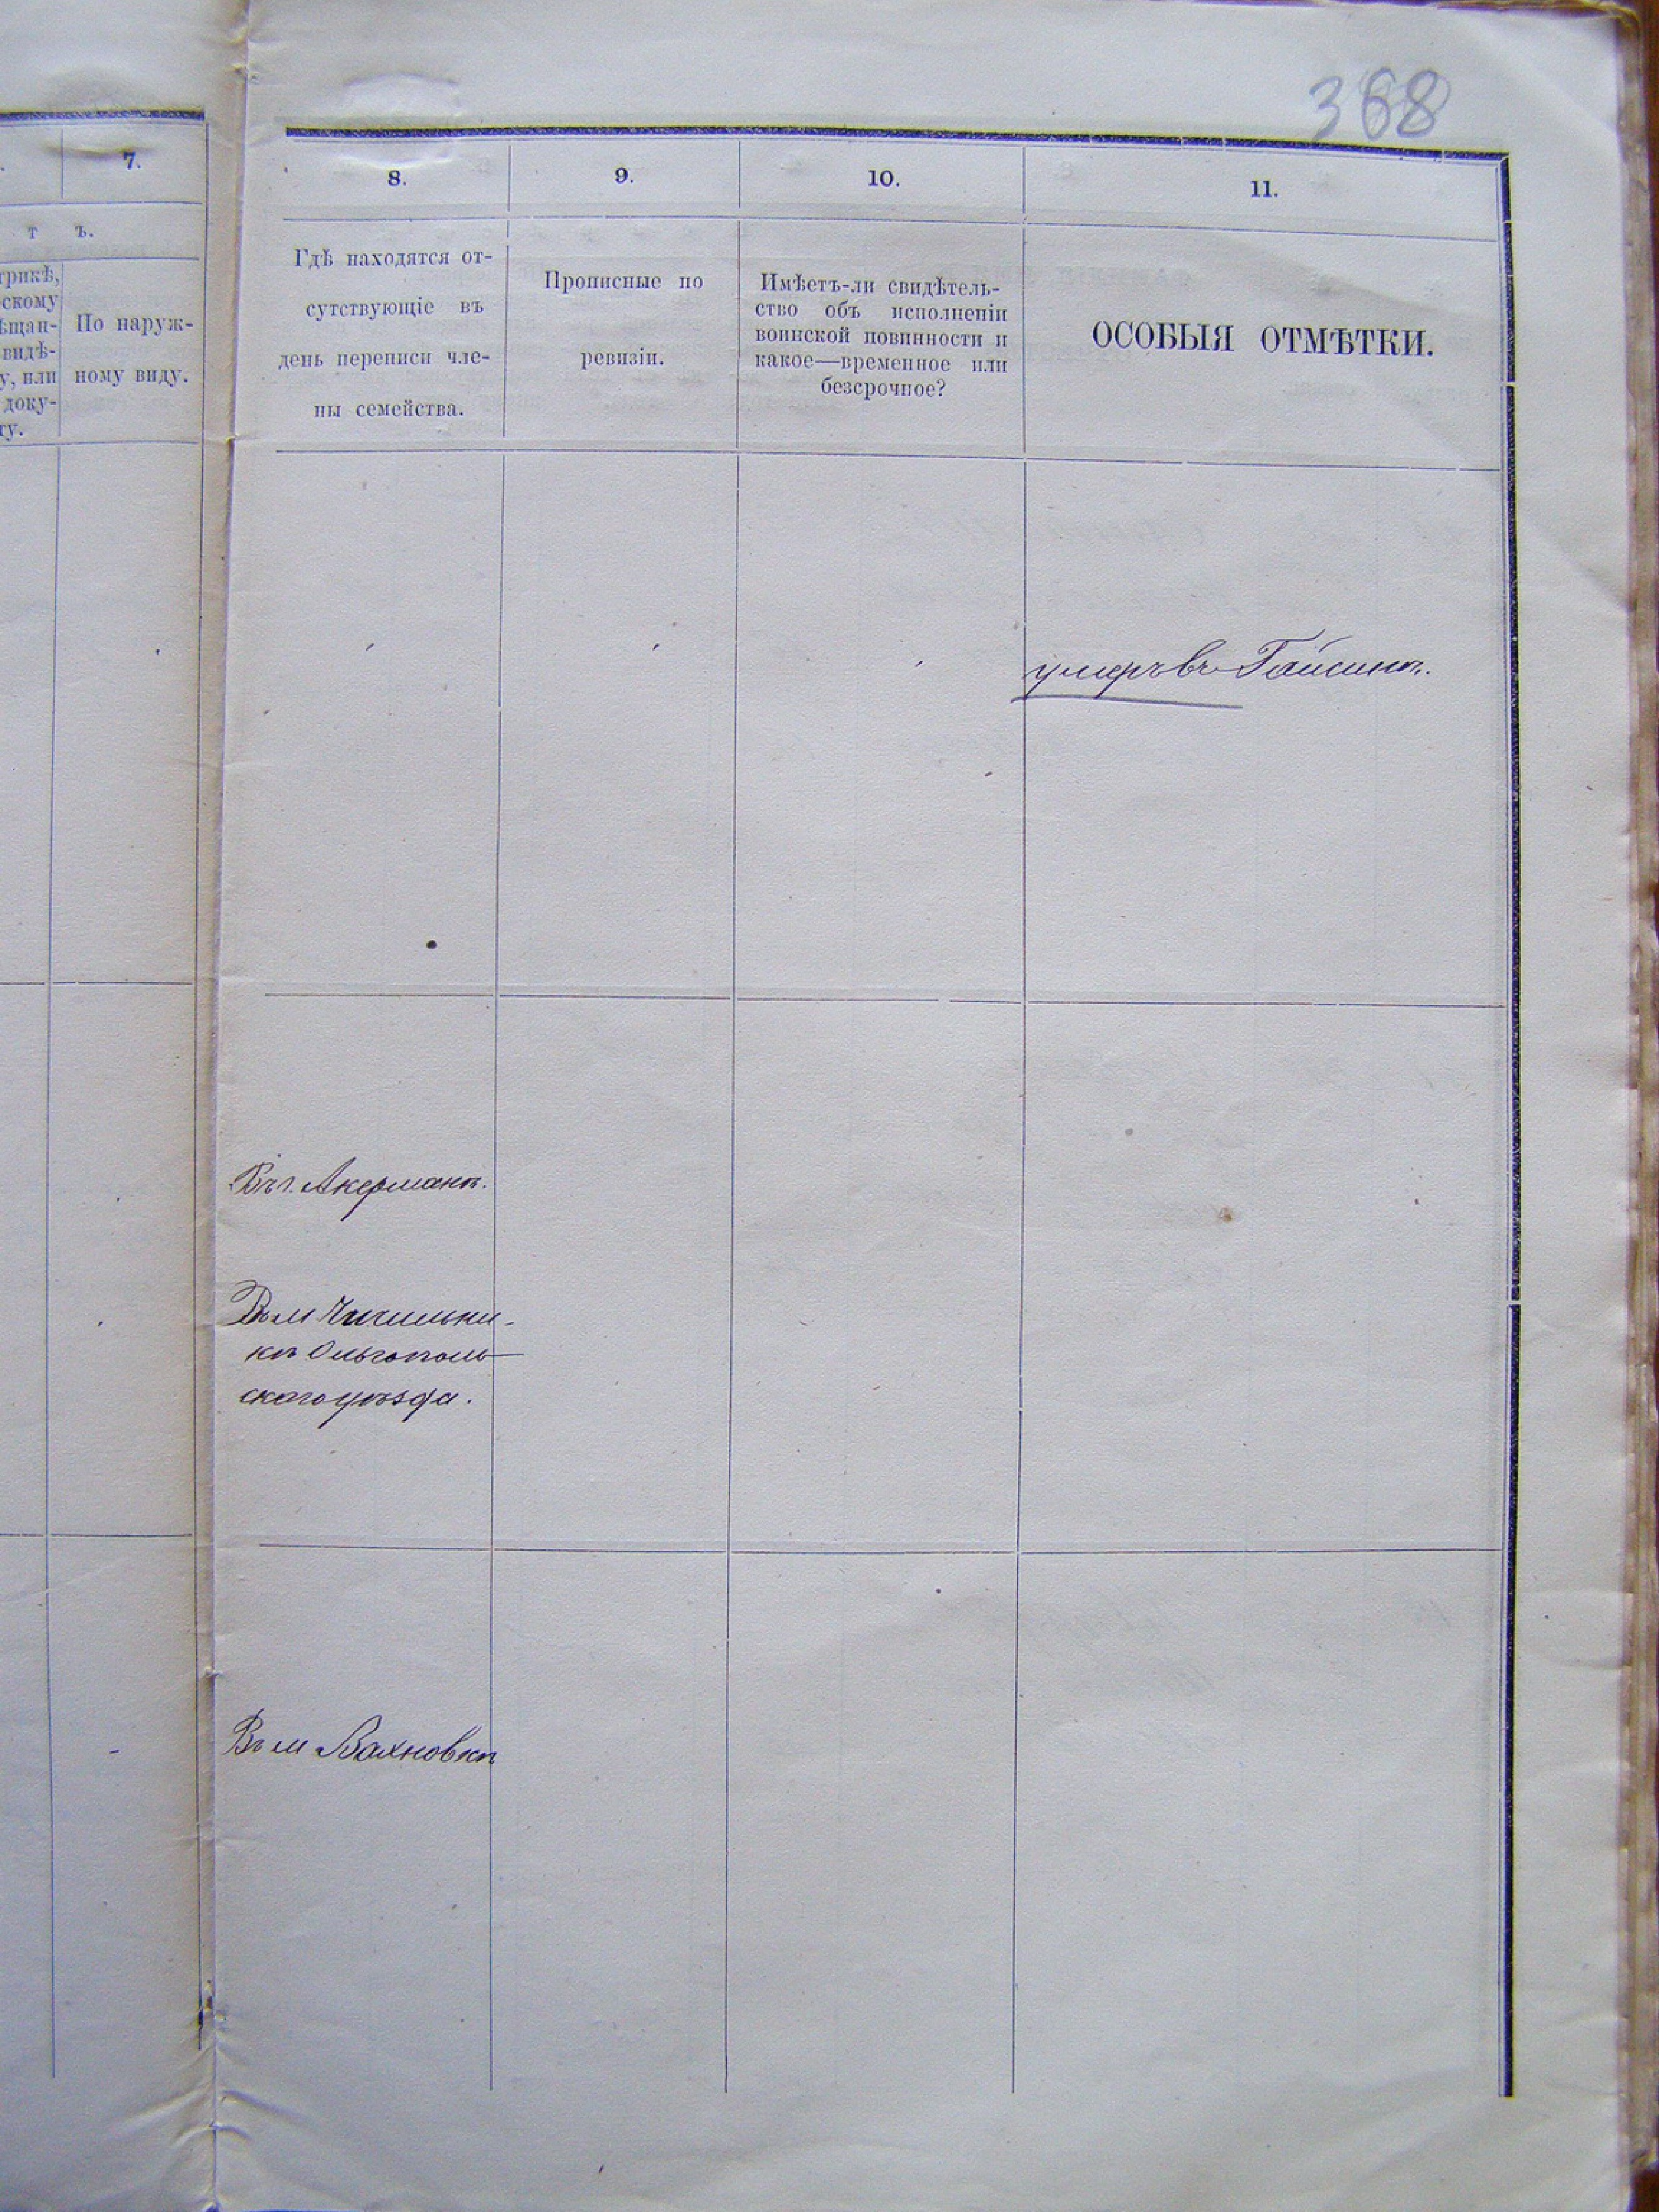 368
7.
т ъ.
трикѣ,
скому
ѣщан-
видѣ-
у, или
доку-
ту.
По наруж-
ному виду.
8.
9.
10.
11.
Гдѣ находятся от-
сутствующіе въ
день переписи чле-
ны семейства.
Прописные по
ревизіи.
Имѣетъ-ли свидѣтель-
ство объ исполненіи
воинской повинности и
какое—временное или
безсрочное?
ОСОБЫЯ ОТМѢТКИ.
умеръ въ Гайсинѣ.
Въ г. Акерманѣ.
Въ м Чичильни-
кѣ Ольгополь-
скаго уѣзда.
Въ м Вахновкѣ